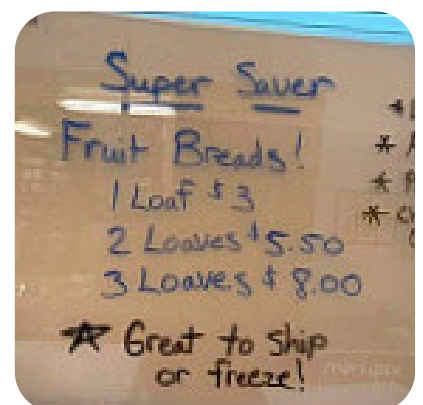 Super Saver
Fruit Breads!
1 Loaf $3
2 Loaves $5.50
3 Loaves $8.00
☆ Great to ship
or freeze!